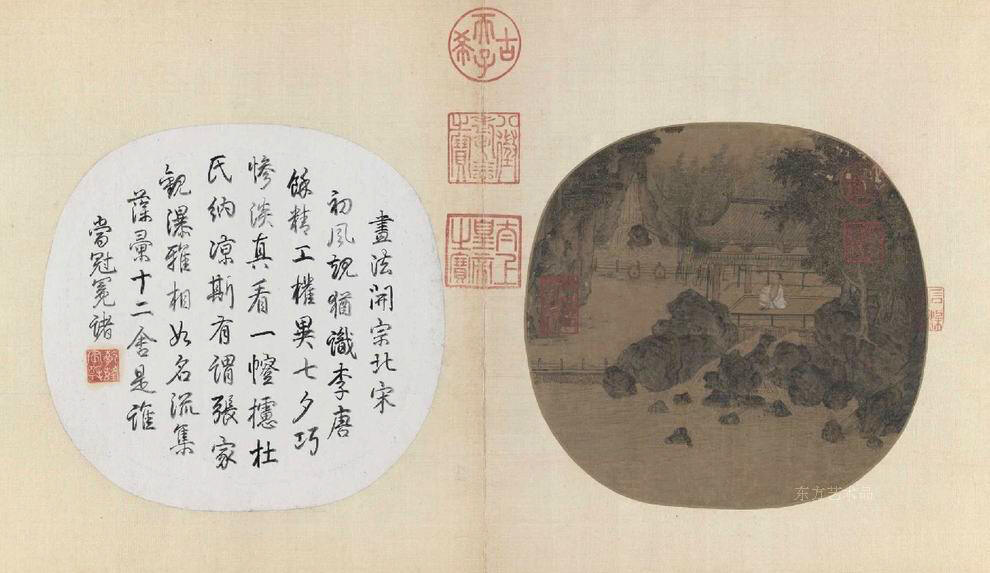 古希天子
八徵耄念之寶
太上皇帝之寶
畫法開宗北宋
初風規猶識李唐
餘精工權異七夕巧
慘淡真看一幰攄杜
氏納涼斯有謂張家
觀瀑雅相如名流集
藻彙十二舍是誰
當冠冕諸
东方艺术品